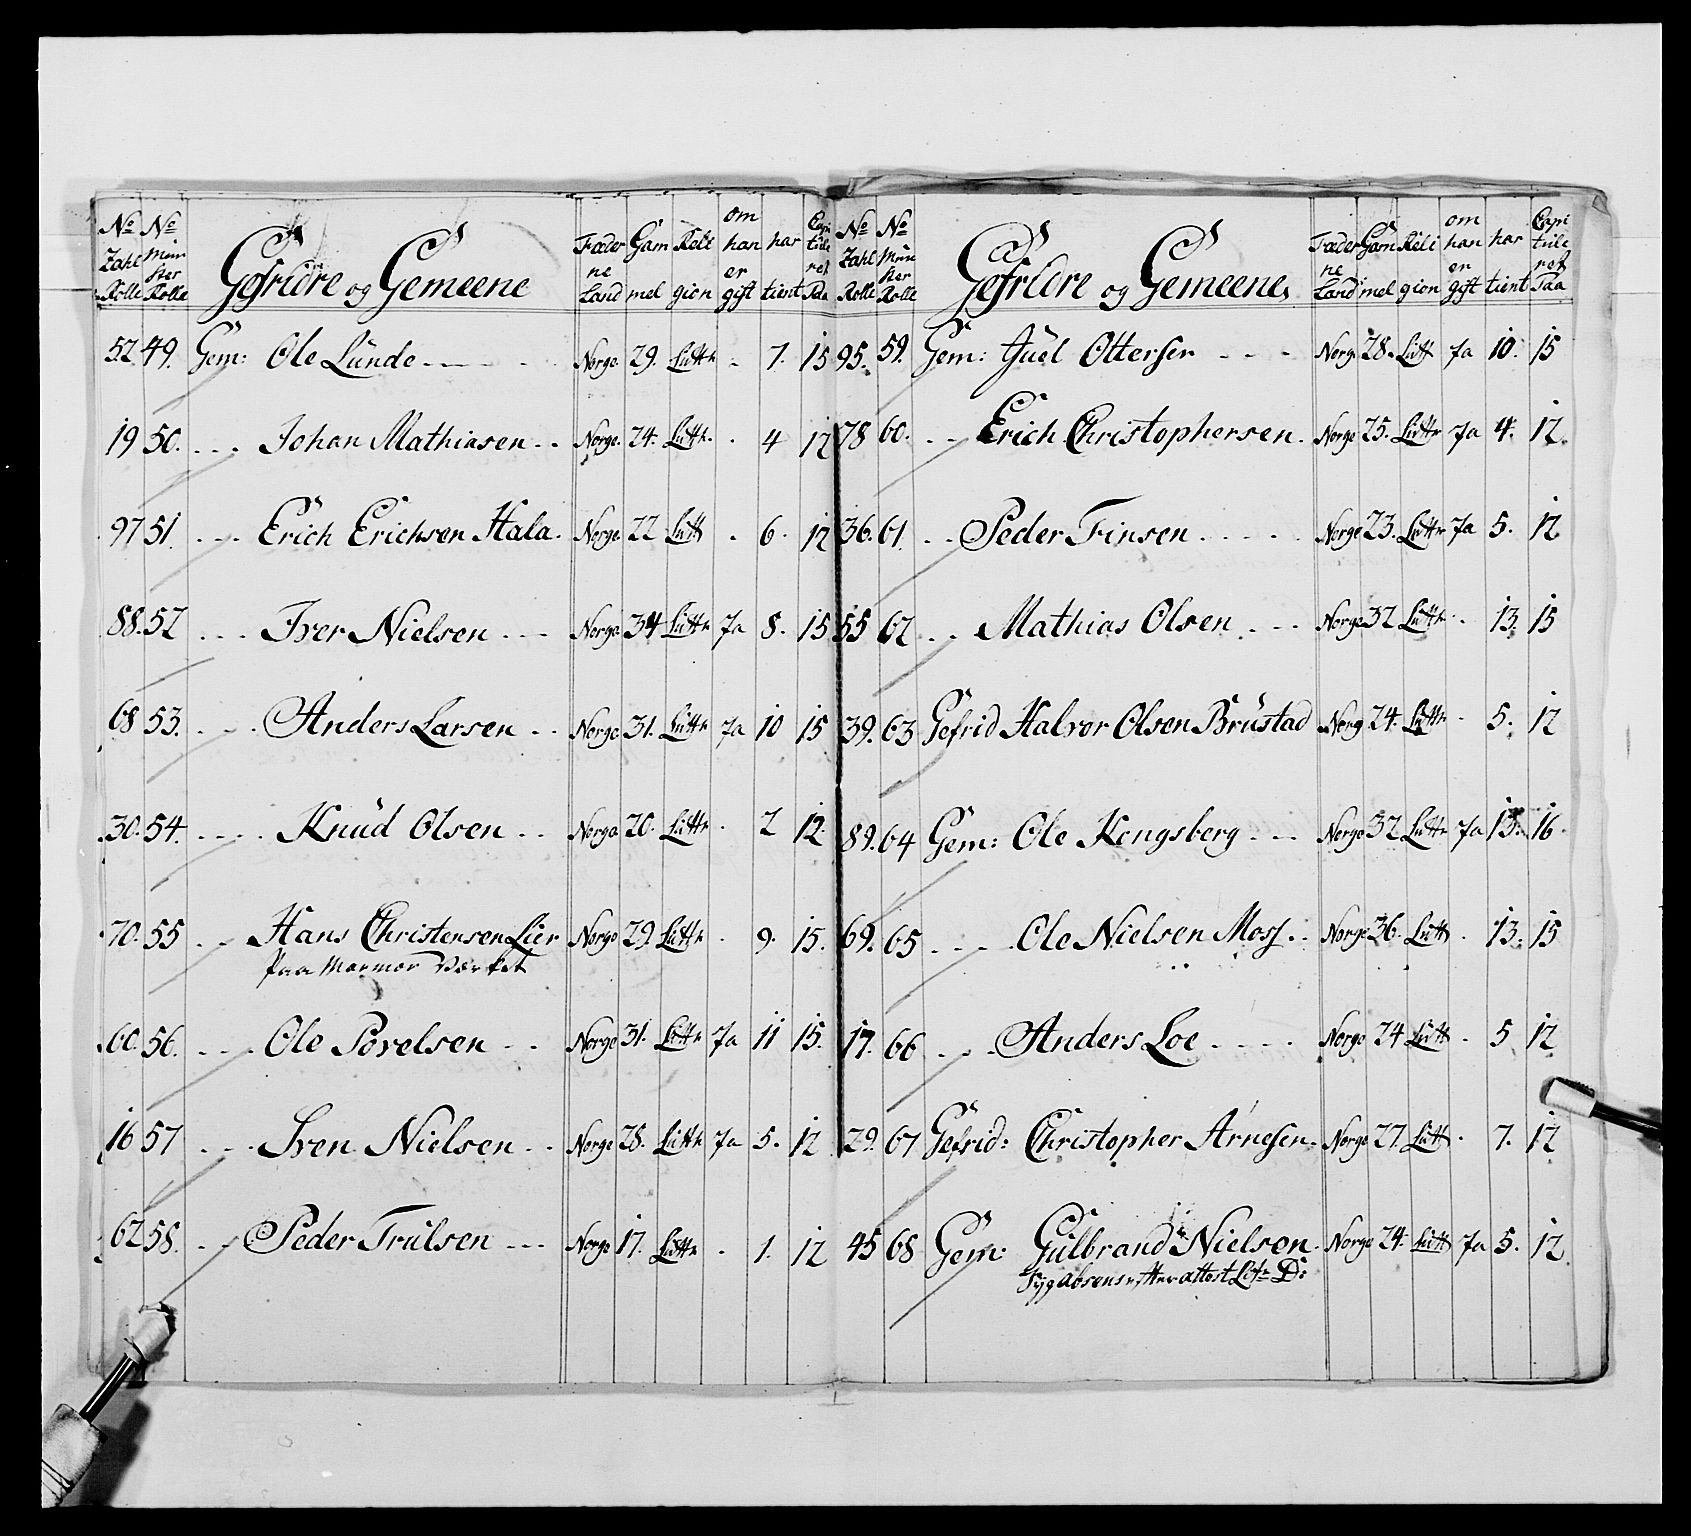 No Zahl Rolle No Mün ster Rolle Gefridre og Gemeene Fæder ne Land Gam mel Reli gion om han er gift har tient Capi tule ret Paa
52. 49. Gem: Ole Lünde Norge 29. Lutthr - 7. 15
19 50. Johan Mathiasen Norge. 24. Lutthr. - 4 12
97 51. Erich Erichsen Hala. Norge 22 Lutth - 6. 12
88. 52 Iver Nielsen Norge 34 Lutthr Ja 8. 15
68 53. Anders Larsen Norge 31. Lutthr Ja 10 15
30. 54. Knüd Olsen Norge 20. Lutthr - 2 12.
70. 55 Hans Christensen Lier Norge 29. Lutthr - 9. 15.
Paa Marmor Værket
60. 56. Ole Povelsen Norge 31. Lutthr Ja 11 15.
16 57 Sven Nielsen Norge 28. Lutthr Ja 5. 12
62 58. Peder Trülsen Norge 17. Lutthr - 1. 12
No Zahl Rolle No Mün ster Rolle Gefridre og Gemeene Fæder ne Land Gam mel Reli gion om han er gift har tient Capi tule ret Paa
95. 59. Gem: Juel Ottersen Norge 28. Lutth Ja 10. 15
78 60. Erich Christophersen. Norge 25. Lutthr Ja 4. 12.
36. 61. Peder Finsen Norge 23. Lutthr Ja 5. 12
55 62 Mathias Olsen Norge 32 Lutthr - 13. 15
39. 63 Gefrid Halvor Olsen Brüstad Norg 24. Lutthr - 5. 12
89. 64 Gem: Ole Kongsberg Norge 32 Lutthr Ja 13. 16.
69. 65 Ole Nielsen Moss Norge 36. Lutth - 13. 15
17. 66 Anders Loe Norge 24 Lutth - 5 12
29. 67 Gefrid: Christopher Arnesen Norge 27. Lutth - 7. 12
45 68 Gem: Gülbrand Nielsen Norge 24. Lutth Ja 5. 12
Syg absens efter attest Litr D: